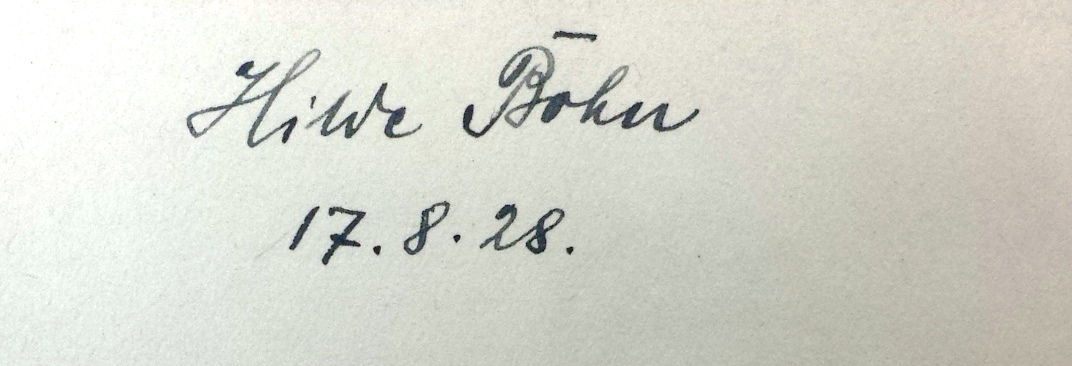 Hilde Böhn
17.8.28.